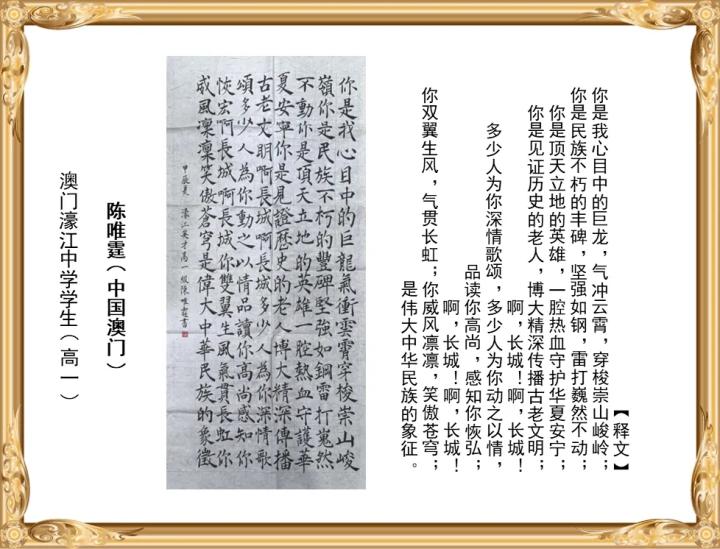 【释文】
你是我心目中的巨龙，气冲云霄，穿梭崇山峻岭；
你是民族不朽的丰碑，坚强如钢，雷打巍然不动；
你是顶天立地的英雄，一腔热血守护华夏安宁；
你是见证历史的老人，博大精深传播古老文明；
啊，长城！啊，长城！
多少人为你深情歌颂，多少人为你动之以情，
品读你高尚，感知你恢弘；
啊，长城！啊，长城！
你双翼生风，气贯长虹；你威风凛凛，笑傲苍穹；
是伟大中华民族的象征。
你是我心目中的巨龍氣衝雲霄穿梭崇山峻
嶺你是民族不朽的豐碑堅強如鋼雷打嵬然
不動你是頂天立地的英雄一腔熱血守護華
夏安寧你是見證歷史的老人博大精深傳播
古老文明啊長城啊長城多少人為你深情歌
頌多少人為你動之以情品讀你高尚感知你
恢宏啊長城啊長城你雙翼生風氣貫長虹你
威風凜凜笑傲蒼穹是偉大中華民族的象徵
甲辰夏 濠江英才高一級陳唯霆書
陈唯霆（中国澳门）
澳门濠江中学学生（高一）